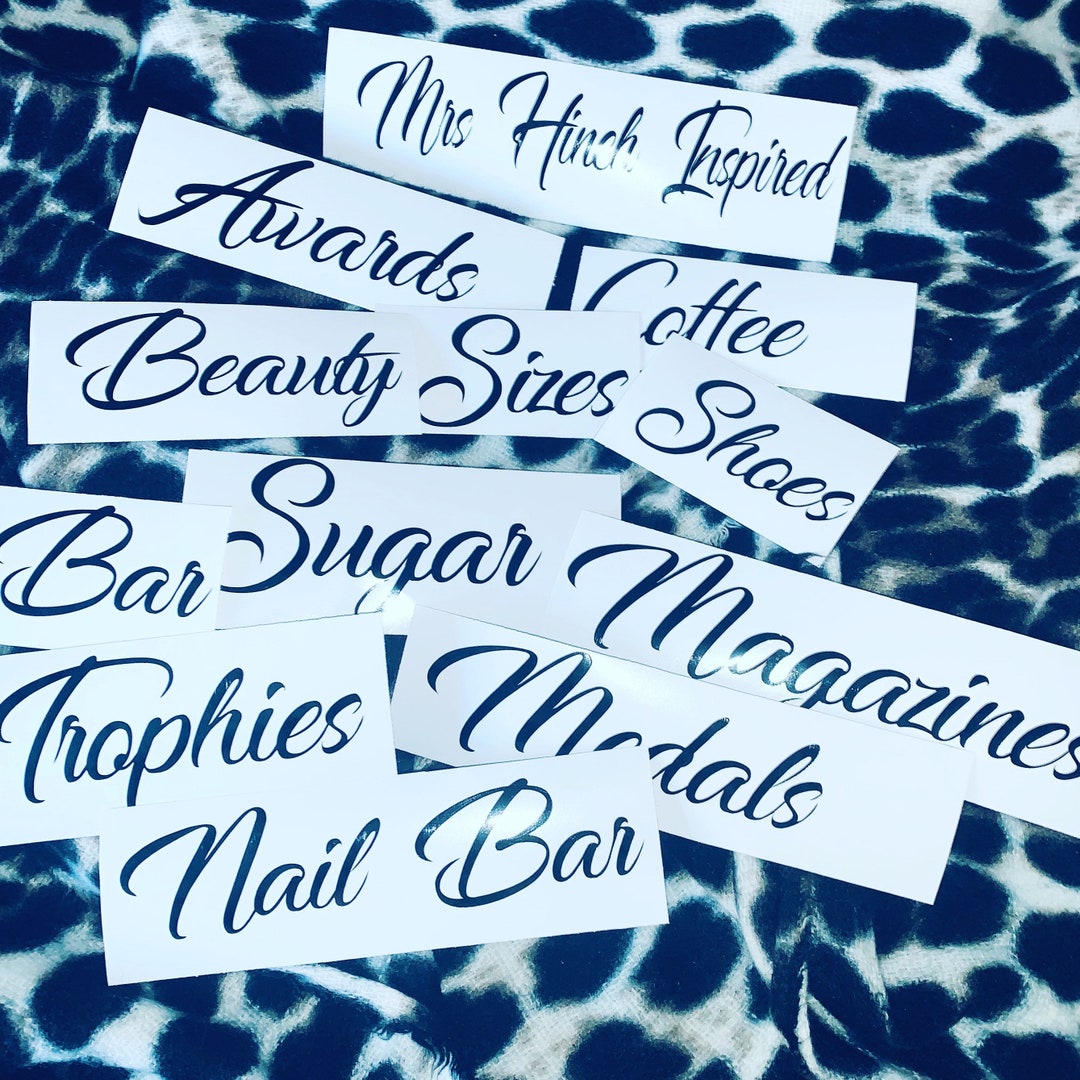 Mrs Hinch Inspired
Awards
Coffee
Beauty
Sizes
Shoes
Sugar
Bar
Magazines
Trophies
Medals
Nail Bar